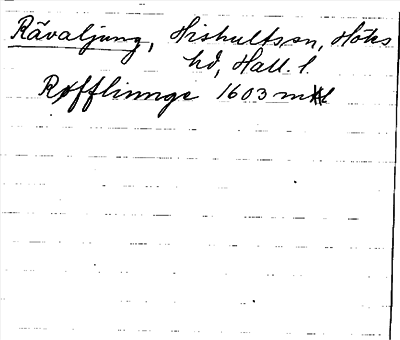 Rävaljung, Hishults sn, Höks
hd, Hall. l.
Røfflinnge 1603 mtl